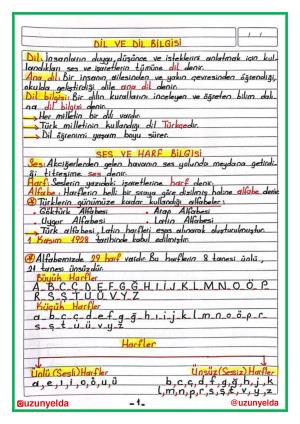 DİL VE DİL BİLGİSİ
Dil: İnsanların duygu, düşünce ve isteklerini anlatmak için kul-
landıkları ses ve işaretlerin tümüne dil denir.
Ana dil: Bir insanın ailesinden ve yakın çevresinden öğrendiği,
okulda geliştirdiği dile ana dil denir.
Dil bilgisi: Bir dilin kurallarını inceleyen ve öğreten bilim dalı-
na dil bilgisi denir.
Her milletin bir dili vardır.
Türk milletinin kullandığı dil Türkçedir.
Dil öğrenimi yaşam boyu sürer.
SES VE HARF BİLGİSİ
Ses: Akciğerlerden gelen havanın ses yolunda meydana getirdi-
ği titreşime ses denir.
Harf: Seslerin yazıdaki işaretlerine harf denir.
Alfabe: Harflerin belli bir sıraya göre dizilmiş haline alfabe denir.
Türklerin günümüze kadar kullandığı alfabeler:
• Göktürk Alfabesi • Arap Alfabesi
• Uygur Alfabesi • Latin Alfabesi
Türk alfabesi, Latin harfleri esas alınarak oluşturulmuştur.
1 Kasım 1928 tarihinde kabul edilmiştir.
Alfabemizde 29 harf vardır. Bu harflerin 8 tanesi ünlü,
21 tanesi ünsüzdür.
Büyük Harfler
A B C Ç D E F G Ğ H I İ J K L M N O Ö P
R S Ş T U Ü V Y Z
Küçük Harfler
a b c ç d e f g ğ h ı i j k l m n o ö p r
s ş t u ü v y z
Harfler
Ünlü (Sesli) Harfler Ünsüz (Sessiz) Harfler
a, e, ı, i, o, ö, u, ü b, c, ç, d, f, g, ğ, h, j, k
l, m, n, p, r, s, ş, t, v, y, z
@uzunyelda -1- @uzunyelda